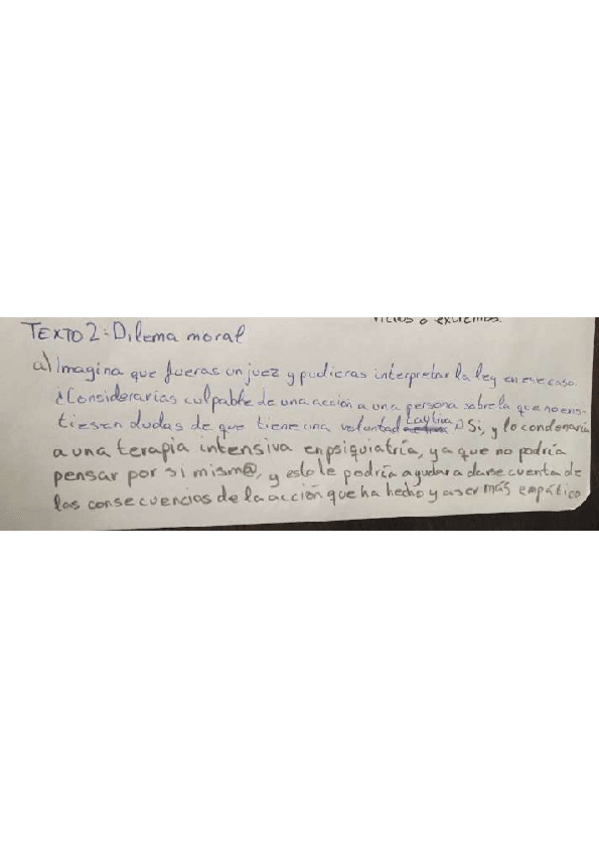 vicios o extremos.
TEXTO 2: Dilema moral
a) Imagina que fueras un juez y pudieras interpretar la ley en ese caso.
¿Considerarías culpable de una acción a una persona sobre la que no exis-
tiesen dudas de que tiene una voluntad cautiva? Si, y lo condenaría
a una terapia intensiva en psiquiatría, ya que no podría
pensar por si mism@, y esto le podría ayudar a darse cuenta de
las consecuencias de la acción que ha hecho y a ser más empático